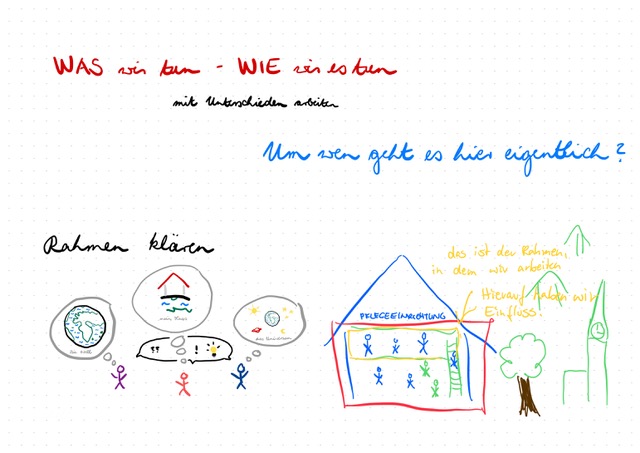 WAS wir tun - WIE wir es tun
mit Unterschieden arbeiten
Um wen geht es hier eigentlich?
Rahmen klären
das ist der Rahmen,
in dem wir arbeiten
Hierauf haben wir
Einfluss!
PFLEGEEINRICHTUNG
?? ! !